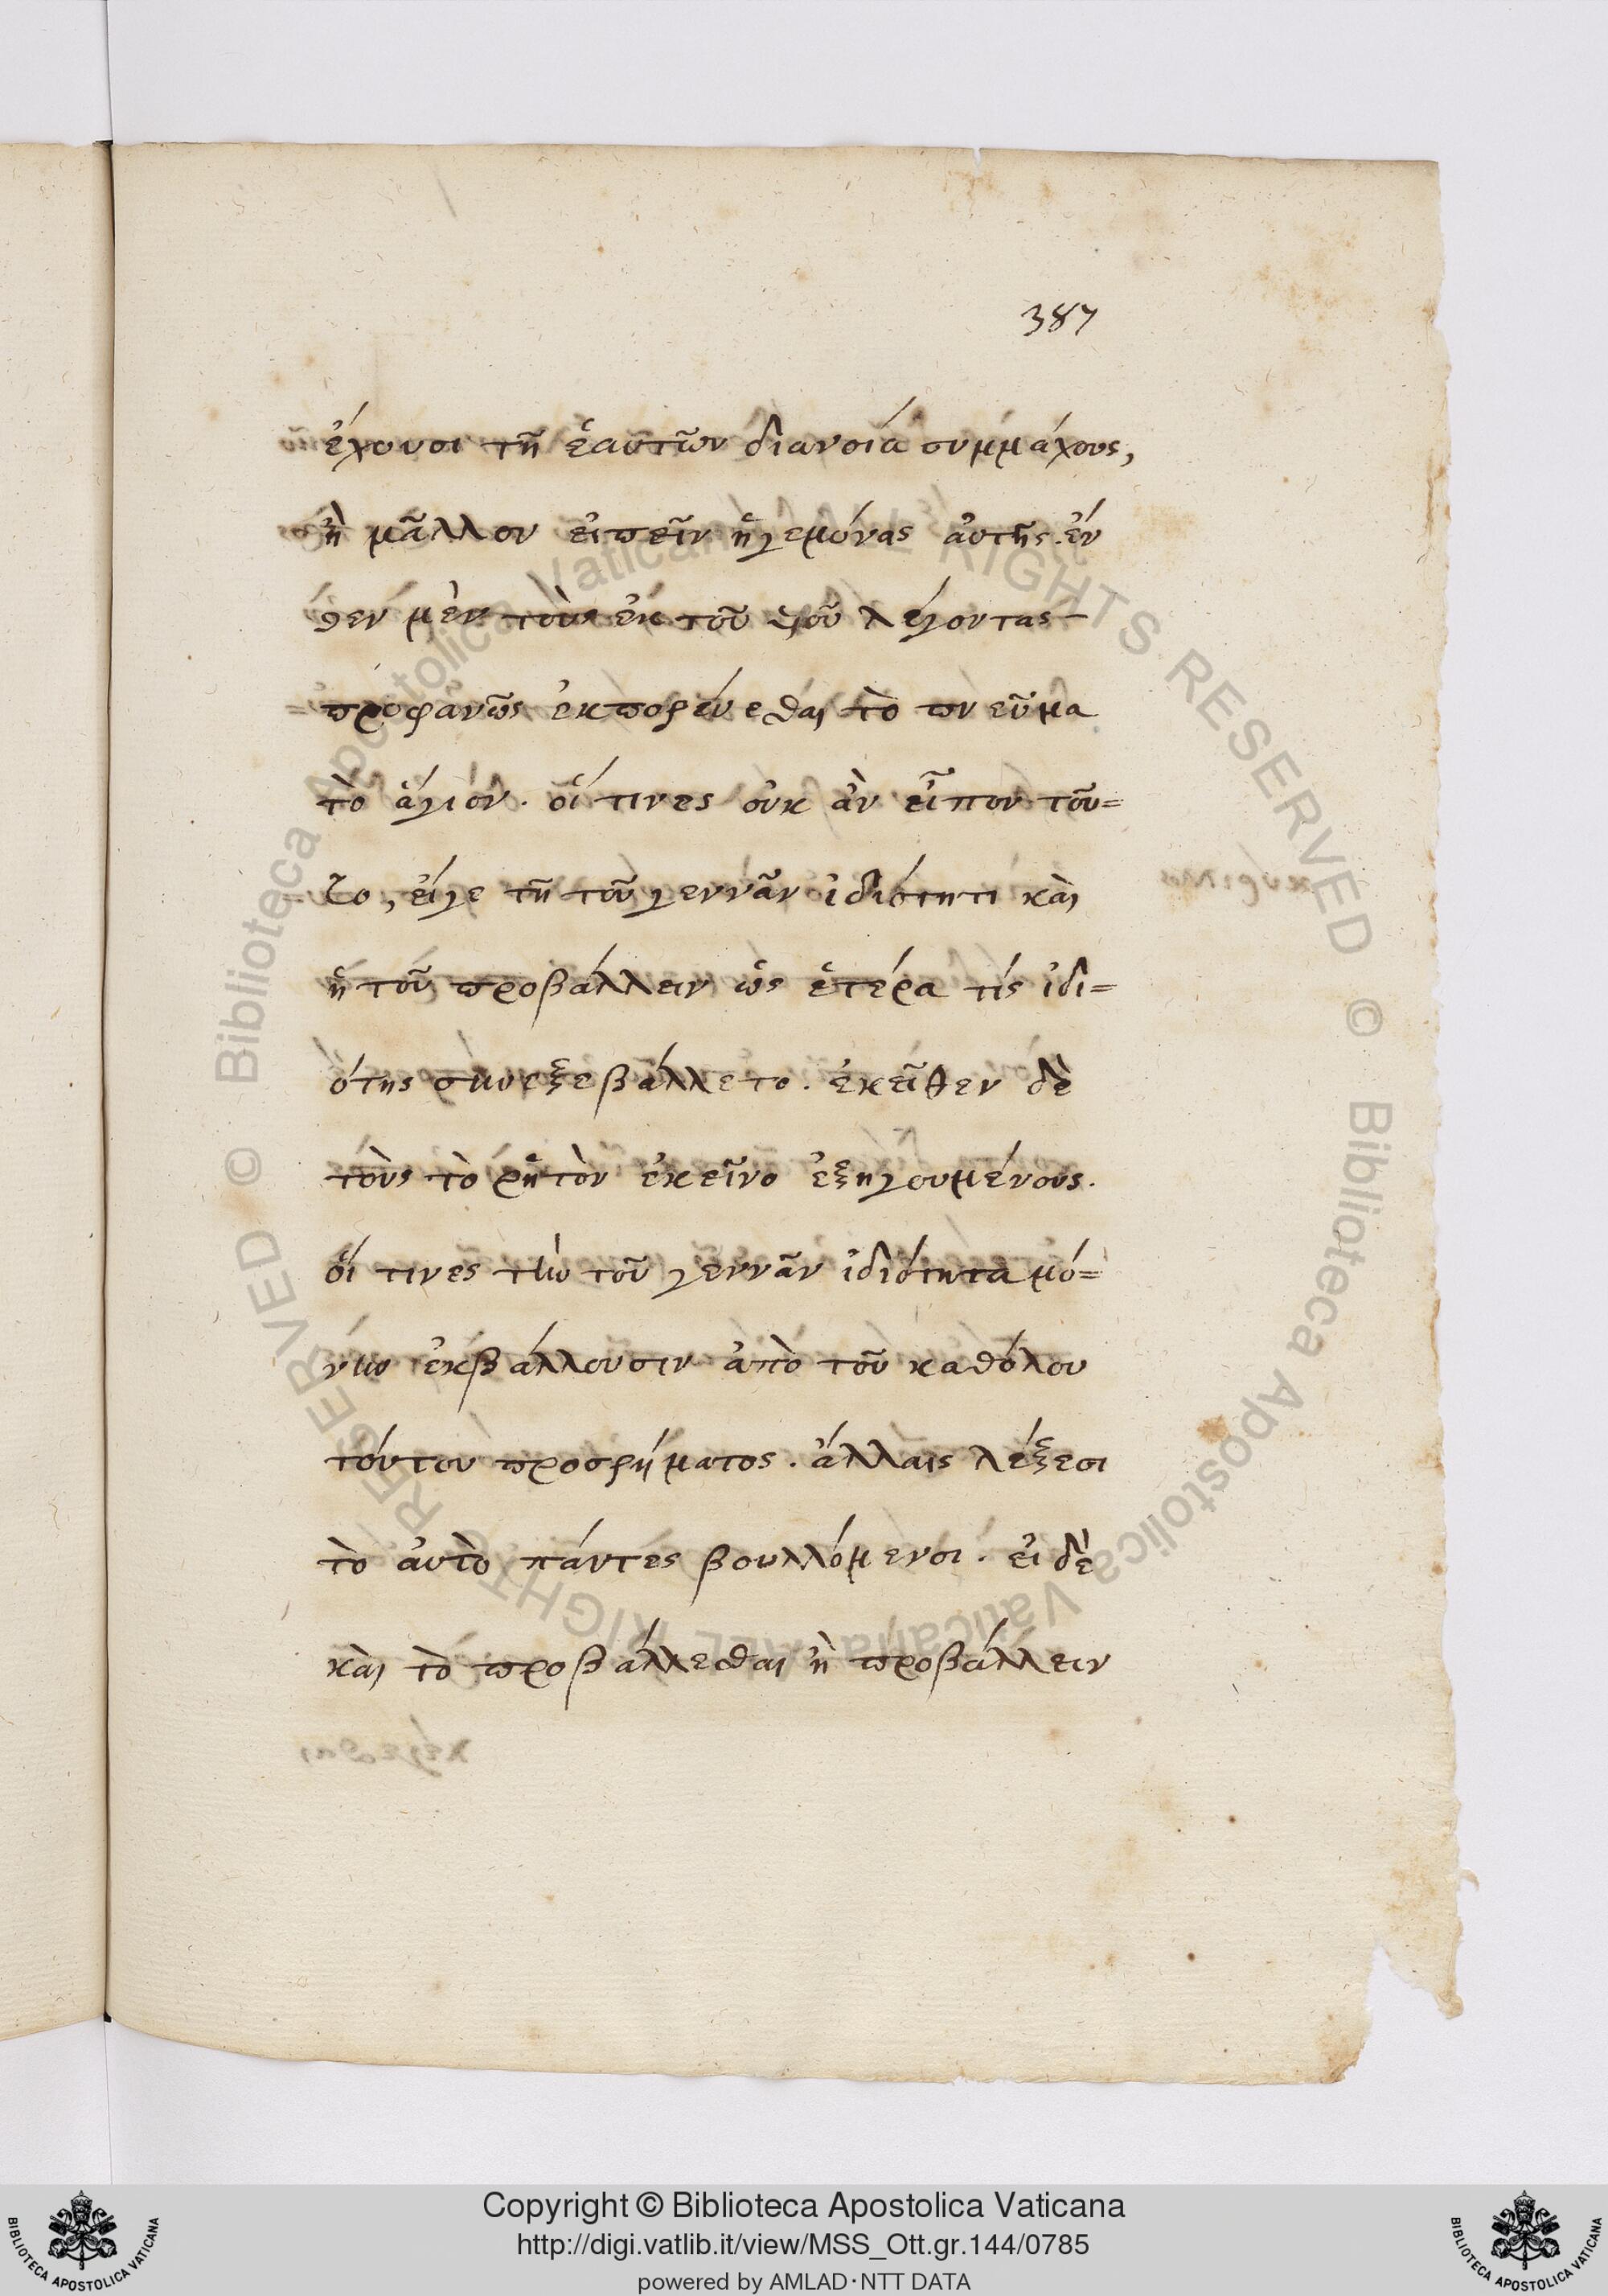 387
ἔχουσι τῆ ἑαυτῶν διανοία συμμάχους,
ἢ μᾶλλον εἰπεῖν ἡγεμόνας ἀυτῆς. ἔν
θεν μὲν τοὺς ἐκ τοῦ υἱοῦ λέγοντας
προφανῶς ἐκπορεύεσθαι τὸ πνεῦμα
τὸ ἅγιον. οἵ τινες οὐκ ἂν εἶπον τοῦ=
το, εἴγε τῆ τοῦ γεννᾶν ἰδιότητι καὶ
ἡ τοῦ προβάλλειν ὡς ἑτέρα τίς ἰδι=
ότης συνεξεβάλλετο. ἐκεῖθεν δὲ
τοὺς τὸ ῥητὸν ἐκεῖνο ἐξηγουμένους.
οἵ τινες τὴν τοῦ γεννᾶν ἰδιότητα μό=
νην ἐκβάλλουσιν ἀπὸ τοῦ καθόλου
τούτου προσρήματος. ἄλλαις λέξεσι
τὸ ἀυτὸ πάντες βουλλόμενοι. εἰ δὲ
καὶ τὸ προβάλλεσθαι ἢ προβάλλειν
© Biblioteca Apostolica Vaticana ALL RIGHTS RESERVED
© Biblioteca Apostolica Vaticana ALL RIGHTS RESERVED
Copyright © Biblioteca Apostolica Vaticana
http://digi.vatlib.it/view/MSS_Ott.gr.144/0785
powered by AMLAD·NTT DATA
BIBLIOTECA APOSTOLICA VATICANA
BIBLIOTECA APOSTOLICA VATICANA